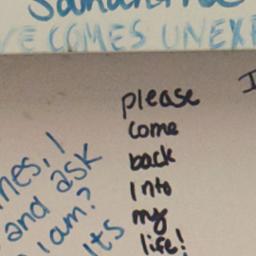 Samantha
VE COMES UNEXPE
please
come
back
Into
my
life!
I
nes, !
and ask
I am?
Its